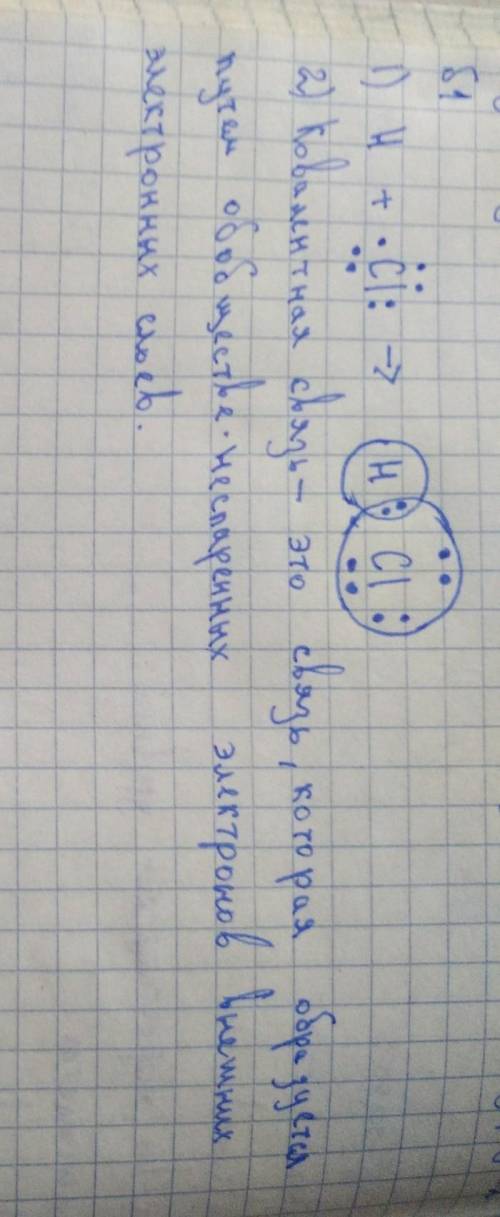 б1
1) H + ·Cl: → H : Cl
2) Ковалентная связь – это связь, которая образуется
путем обобществе. неспаренных электронов внешних
электронных слоев.